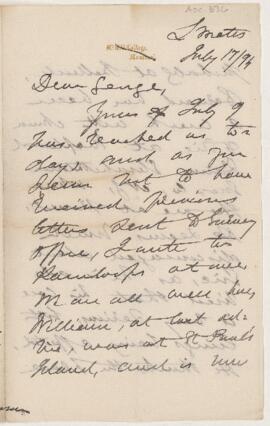 July 17/94
Dear George,
Yours of July 9
has reached us to-
day, and as you
seem not to have
received previous
letters sent to Survey
Office, I write to
Kamloops at once
We are all well here,
William, at last ad-
vice, was at St Paul's
Island, and is now